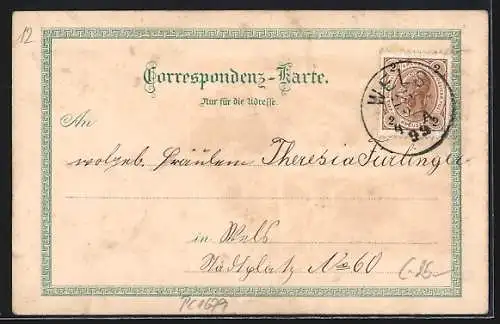 12
Correspondenz-Karte.
Nur für die Adresse.
An
wolgeb. Fräulein Theresia Furlinger
in Wels
Stadtplatz No 60
PC1679